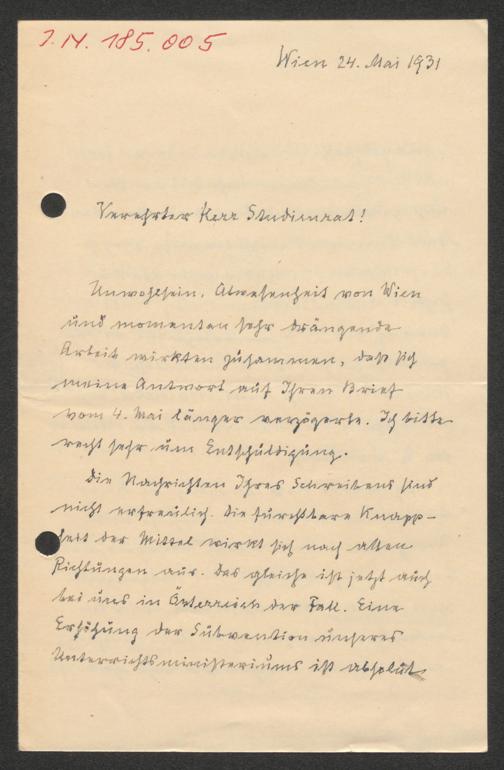 J.N. 185.005
Wien 24. Mai 1931
Verehrter Herr Studienrat!
Unwohlsein, Abwesenheit von Wien
und momentan sehr drängende
Arbeit wirkten zusammen, daß sich
meine Antwort auf Ihren Brief
vom 4. Mai länger verzögerte. Ich bitte
recht sehr um Entschuldigung.
Die Nachrichten Ihres Schreibens sind
nicht erfreulich. Die furchtbare Knapp-
heit der Mittel wirkt sich nach allen
Richtungen aus. Das gleiche ist jetzt auch
bei uns in Österreich der Fall. Eine
Erhöhung der Subvention unseres
Unterrichtsministeriums ist absolut